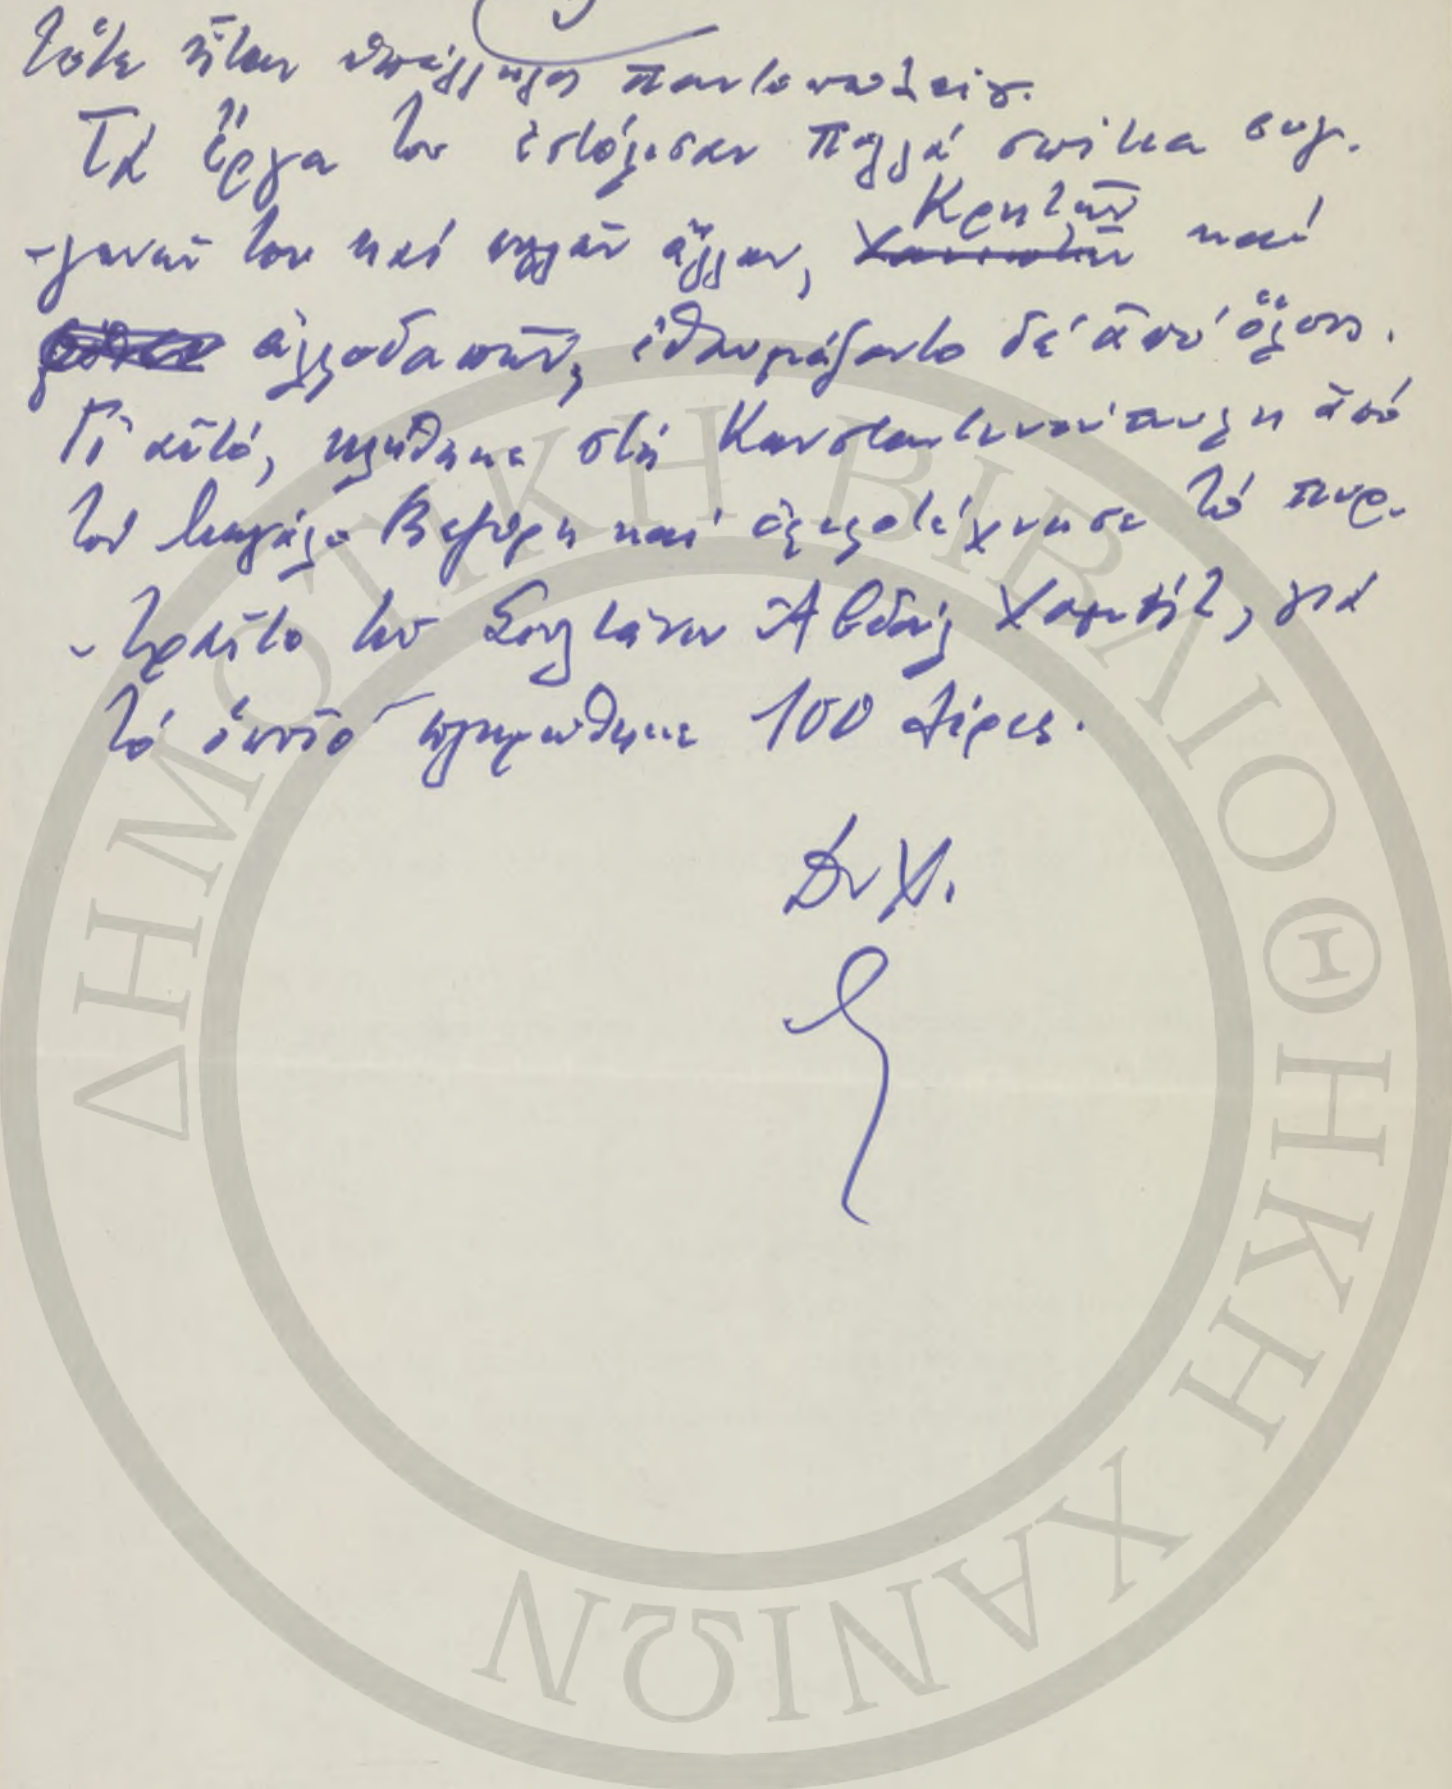 τότε ἦταν ὑπάλληλος παντοπωλείου.
Τά ἔργα του ἐστόλισαν πολλά σπίτια συγ-
-γενῶν του καί πολλῶν ἄλλων, Κρητῶν καί
ἀλλοδαπῶν, ἐθαυμάζοντο δέ ἀπό ὅλους.
Γι αὐτό, κλήθηκε στή Κωνσταντινούπολη ἀπό
τόν Μεγάλο Βεζύρη καί ἐφιλοτέχνησε τό πορ-
-τραῖτο τοῦ Σουλτάνου Ἀβδούλ Χαμίτ, γιά
τό ὁποῖο πληρώθηκε 100 λίρες.
ΔΗΜΟΤΙΚΗ ΒΙΒΛΙΟΘΗΚΗ ΧΑΝΙΩΝ